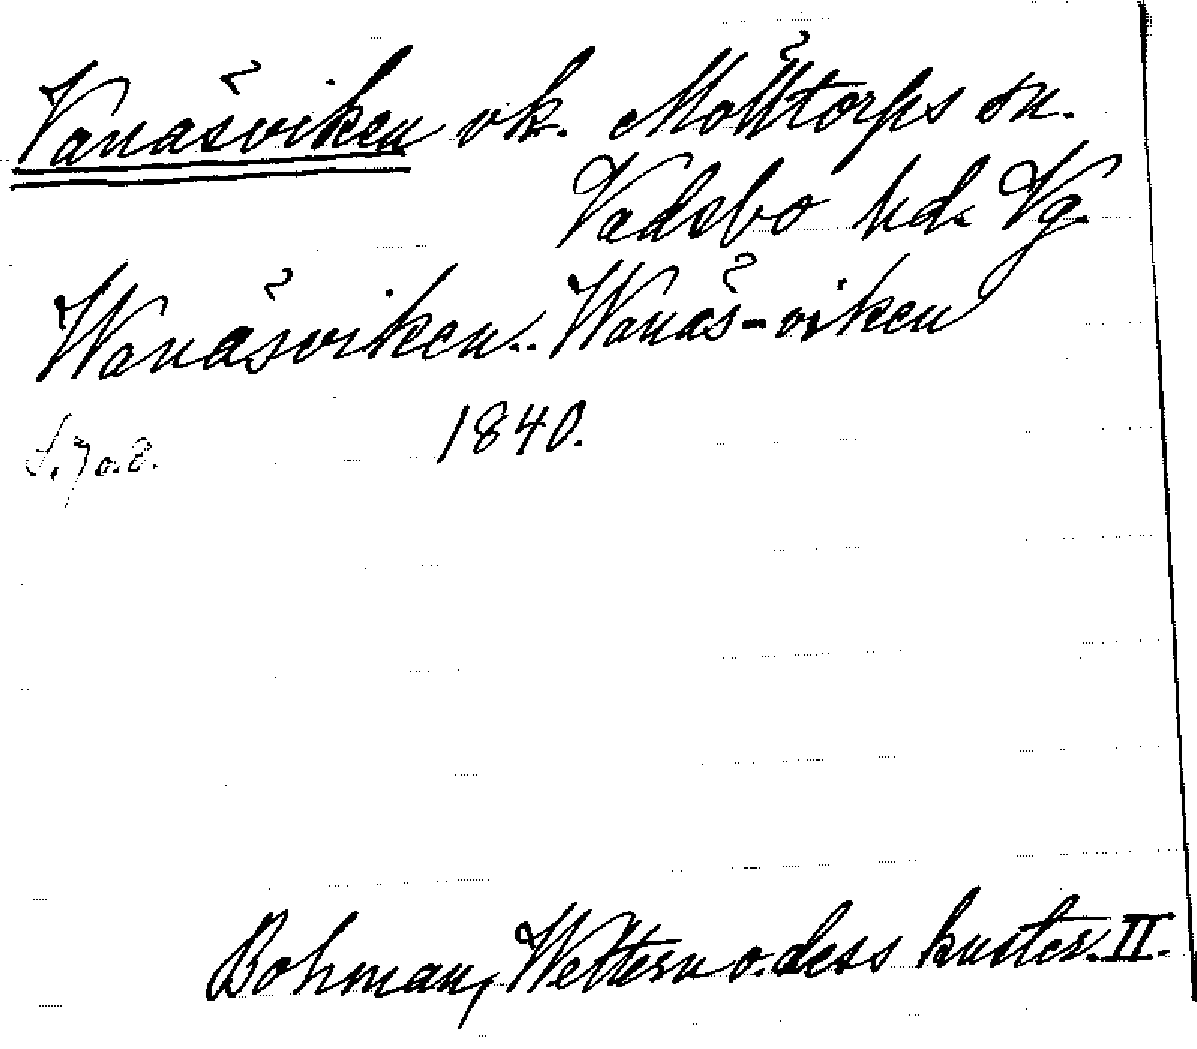 Vanäsviken vk. Mölltorps sn.
Vadsbo hd. Vg.
Wanäsviken. Wanäs-viken
S. 7 o. 8. 1840.
Bohman, Wettern o. dess kuster. II.